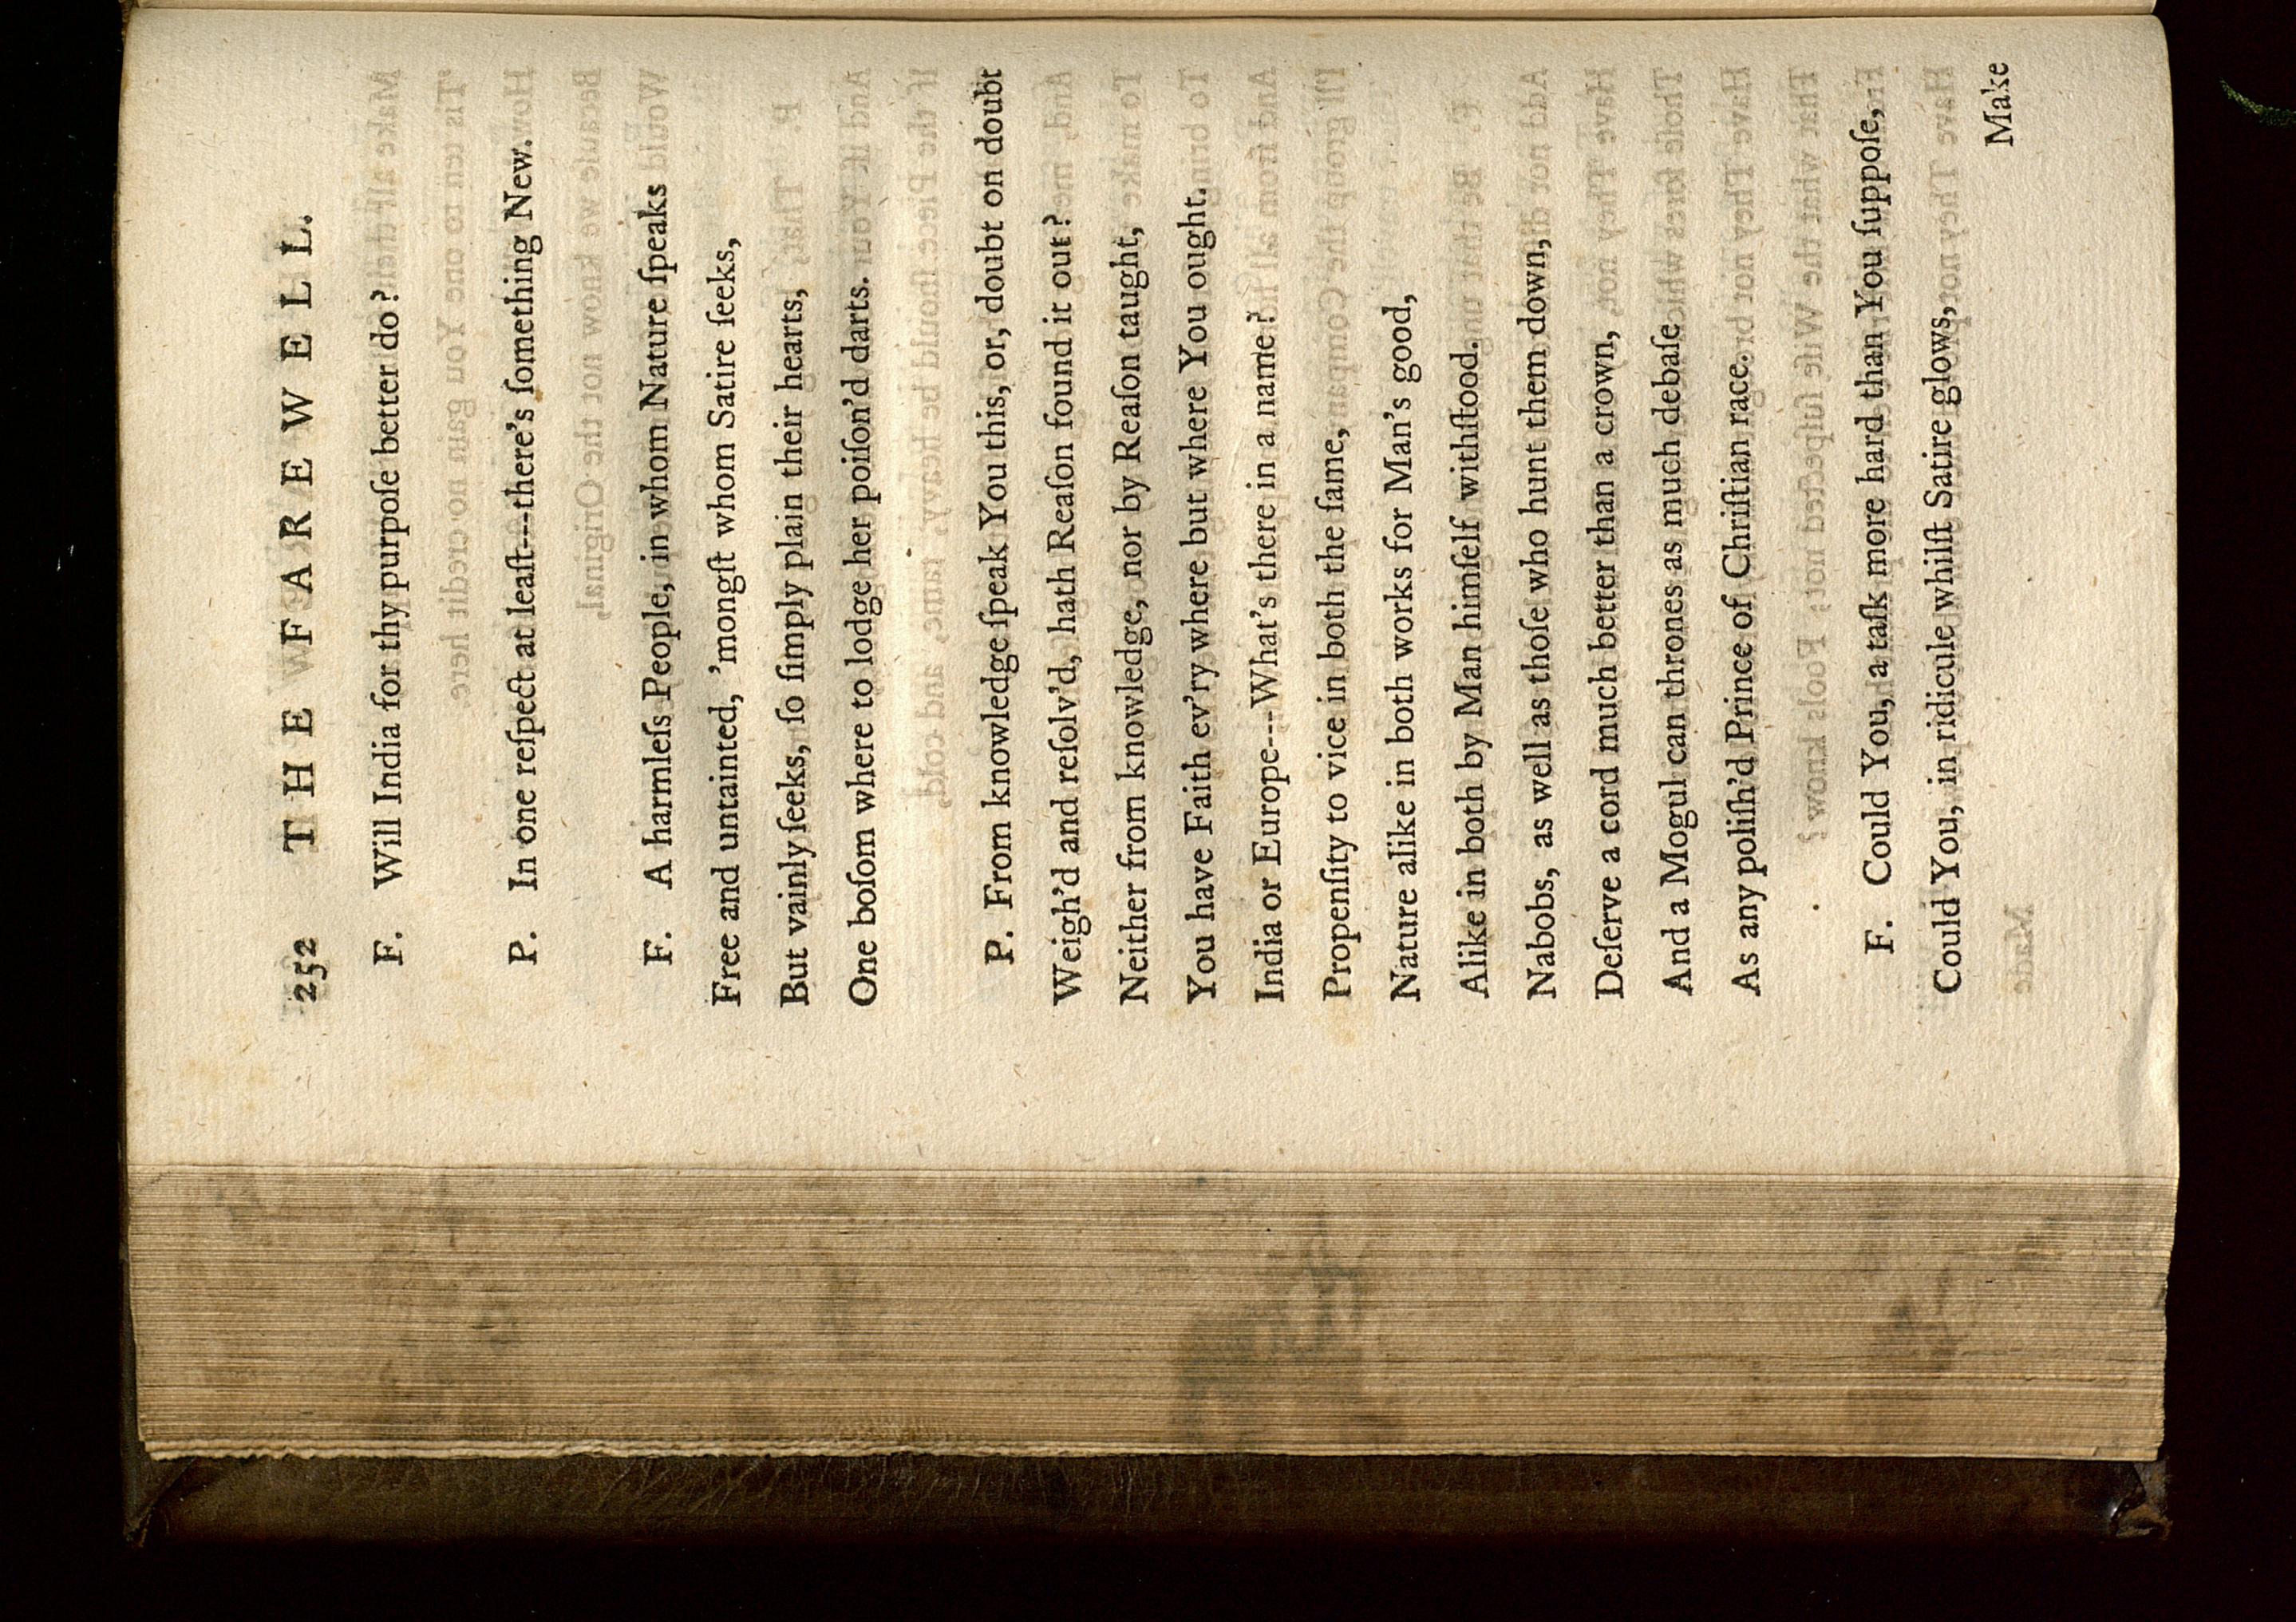 252 THE FAREWELL.
F. Will India for thy purpoſe better do?
P. In one reſpect at leaſt---there's ſomething New.
F. A harmleſs People, in whom Nature ſpeaks
Free and untainted, 'mongſt whom Satire ſeeks,
But vainly ſeeks, ſo ſimply plain their hearts,
One boſom where to lodge her poiſon'd darts.
P. From knowledge ſpeak You this, or, doubt on doubt
Weigh'd and reſolv'd, hath Reaſon found it out?
Neither from knowledge, nor by Reaſon taught,
You have Faith ev'ry where but where You ought.
India or Europe---What's there in a name?
Propenſity to vice in both the ſame,
Nature alike in both works for Man's good,
Alike in both by Man himſelf withſtood.
Nabobs, as well as thoſe who hunt them down,
Deſerve a cord much better than a crown,
And a Mogul can thrones as much debaſe
As any poliſh'd Prince of Chriſtian race.
F. Could You, a taſk more hard than You ſuppoſe,
Could You, in ridicule whilſt Satire glows,
Make